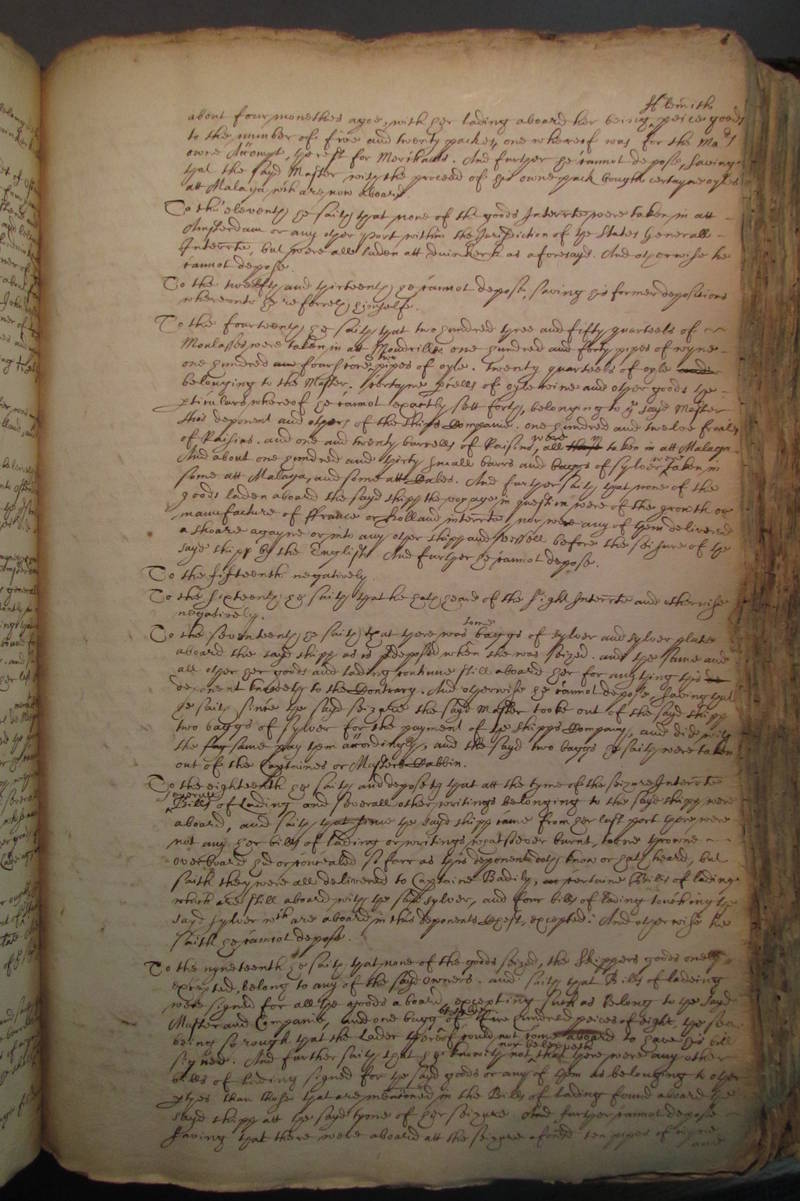 H Smith
about four monethes agoe, with her lading aboard her being peice goods
to the number of five and twenty packes, one whereof was for the Ma:rs
owne Accompt, the rest for Merchants. And further he cannot depose, saving
that the sayd Master with the proceed of his owne pack bought certayne oyles
at Malaga wch are now aboard.
To the eleventh he saith that none of the goods Interrte were taken in att
Amsterdam or any other port within the Jurisdiction of the States Generall
Interrte, but were all laden att duinkerk as aforesayd. And otherwise he
cannot depose.
To the twelfth and thirteenth he cannot depose, saving his former depositions
whereunto he referreth himselfe.
To the fourteenth he saith that two hundred three and fifty quarteels of
Molasses were taken in att one hundred and forty pipes of wyne
one hundred fourscore pipes of oyle. twenty quarteels of oyle
belonging to the Master. certayne of oyle wine and other goods the
pticulars whereof he cannot exactly sett forth, belonging to ye sayd Master
this deponent and others of the ships Companie. one hundred and twelve frails
of Raisins. and one and twenty barrells of Raisins, all taken in att Malaga
And about one hundred and thirty small barrs and baggs of sylver taken in
some att Malaga, and some att Cales. And further saith that none of the
goods laden aboard the sayd shipp the voyage in question, were of the growth or
manufacture of ffrance or Holland interrte nor were any of them delivered
a shoare agayne or into any other shipp and vessell before the seizure of the
sayd shipp by the English. And further he cannot depose.
To the fifteenth negatively
To the sixteenth he saith that he hath heard of the fight Interrte and otherwise
negatively.
To the seventeenth he saith that there was some baggs of sylver and sylver plate
aboard the sayd shipp as is deposed when she was seized. and the same and
all other her goods and lading continue still aboard her for any thing this
deponent knoweth to the Contrary. And otherwise he cannot depose, saving that
he saith since the sayd seizure the sayd Master tooke out of the sayd shipp
two baggs of sylver for the payment of the shipps Company, and did with
the same pay them accordingly, and the sayd two baggs he saith were taken
out of the Captaines or Masters Cabbin.
To the eighteenth he saith and deposeth that att the tyme of the seizure Interrte
severall Bills of lading and severall other writings belonging to the sayd shipp were
aboard, and saith that since the sayd shipp came from her last port there were
not any her bills of lading or writings whatsoever burnt, torne throwne
overboard or concealed so farr as this deponent doth know or hath heard, but
saith they were all delivered to Captaine Badily, certaine Bills of lading
which are still aboard with the sayd sylver, and four bills of lading touching the
sayd sylver wch are aboard in this deponents Chest, excepted. And otherwise he
saith he cannot depose.
To the nyneteenth he saith that none of the goods seized, the Skippers goods onely
excepted, belong to any of the sayd owners. and saith that Bills of ladeing
were signed for all the goods aboard, excepting such as belong to the sayd
Master and Companie, and one bagg of five hundred peices of eight, the sea
being so rough that the Lader thereof could not come aboard to have his bill
signed. And further saith that he knoweth not that there were any other
bills of ladeing signed for the sayd goods or any of them as belonging to other
ptyes than those that are mentioned in the Bills of lading found aboard the
sayd shipp att the sayd tyme of her seizure And further cannot depose
saving that there were aboard att the seizure aforesd ten pipes of wyne
and